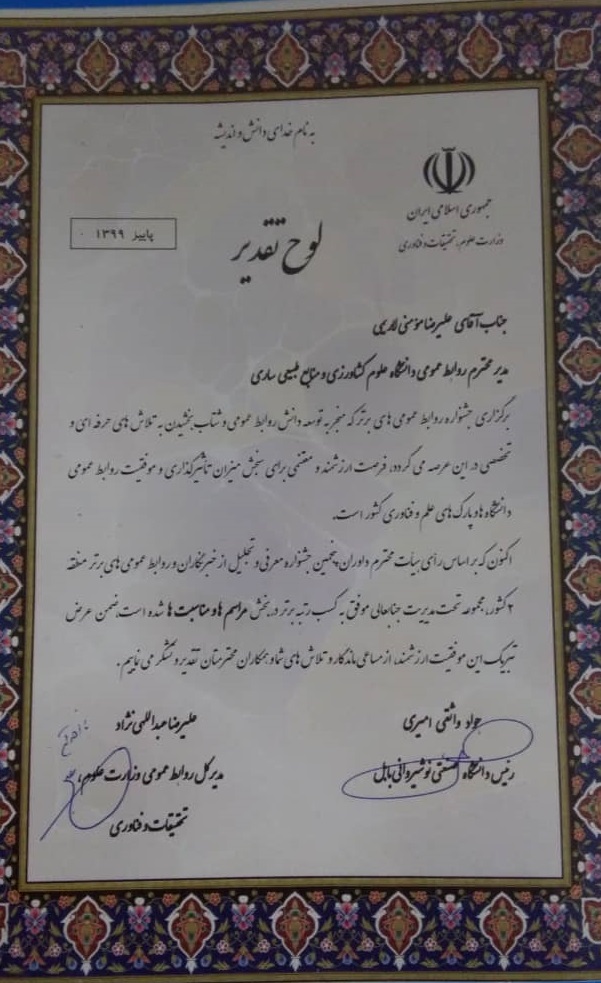 به نام خدای دانش و اندیشه
جمهوری اسلامی ایران
وزارت علوم، تحقیقات و فناوری
پاییز ۱۳۹۹
لوح تقدیر
جناب آقای علیرضا مؤمنی لاریمی
مدیر محترم روابط عمومی دانشگاه علوم کشاورزی و منابع طبیعی ساری
برگزاری جشنواره روابط عمومی های برتر که منجر به توسعه دانش روابط عمومی و شتاب بخشیدن به تلاش های حرفه ای و
تخصصی در این عرصه می گردد، فرصت ارزشمند و مغتنمی برای سنجش میزان تأثیرگذاری و موفقیت روابط عمومی
دانشگاه ها و پارک های علم و فناوری کشور است.
اکنون که بر اساس رأی هیأت محترم داوران پنجمین جشنواره معرفی و تجلیل از خبرنگاران و روابط عمومی های برتر منطقه
۲ کشور، مجموعه تحت مدیریت جنابعالی موفق به کسب رتبه برتر در بخش مراسم ها و مناسبت ها شده است، ضمن عرض
تبریک این موفقیت ارزشمند، از مساعی ماندگار و تلاش های شما و همکاران محترمتان تقدیر و تشکر می نمایم.
جواد واثقی امیری
رئیس دانشگاه صنعتی نوشیروانی بابل
علیرضا عبداللهی نژاد
مدیر کل روابط عمومی وزارت علوم،
تحقیقات و فناوری